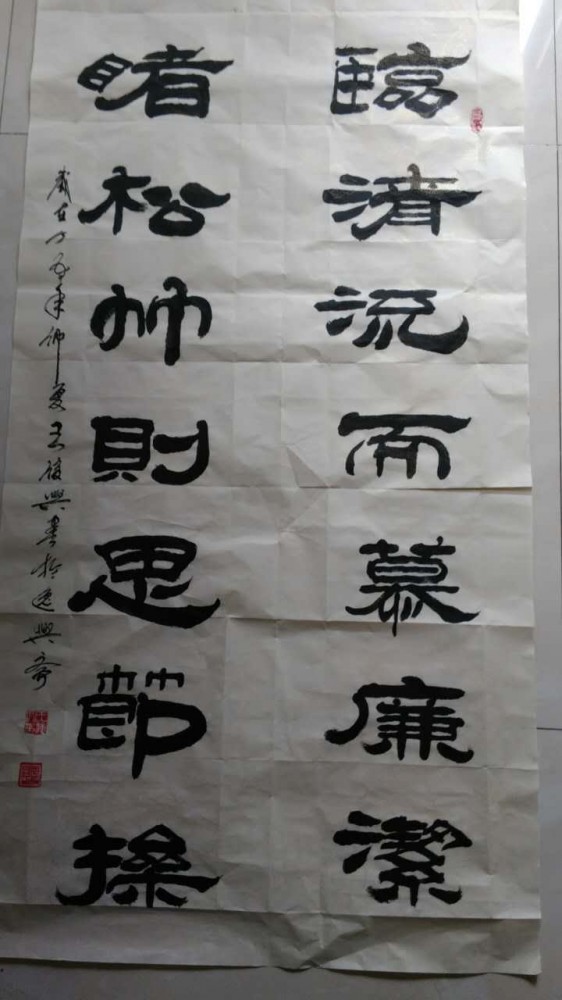 臨清流而慕廉潔
睹松竹則思節操
歲在丁酉年仲夏王後興書於逸興齋